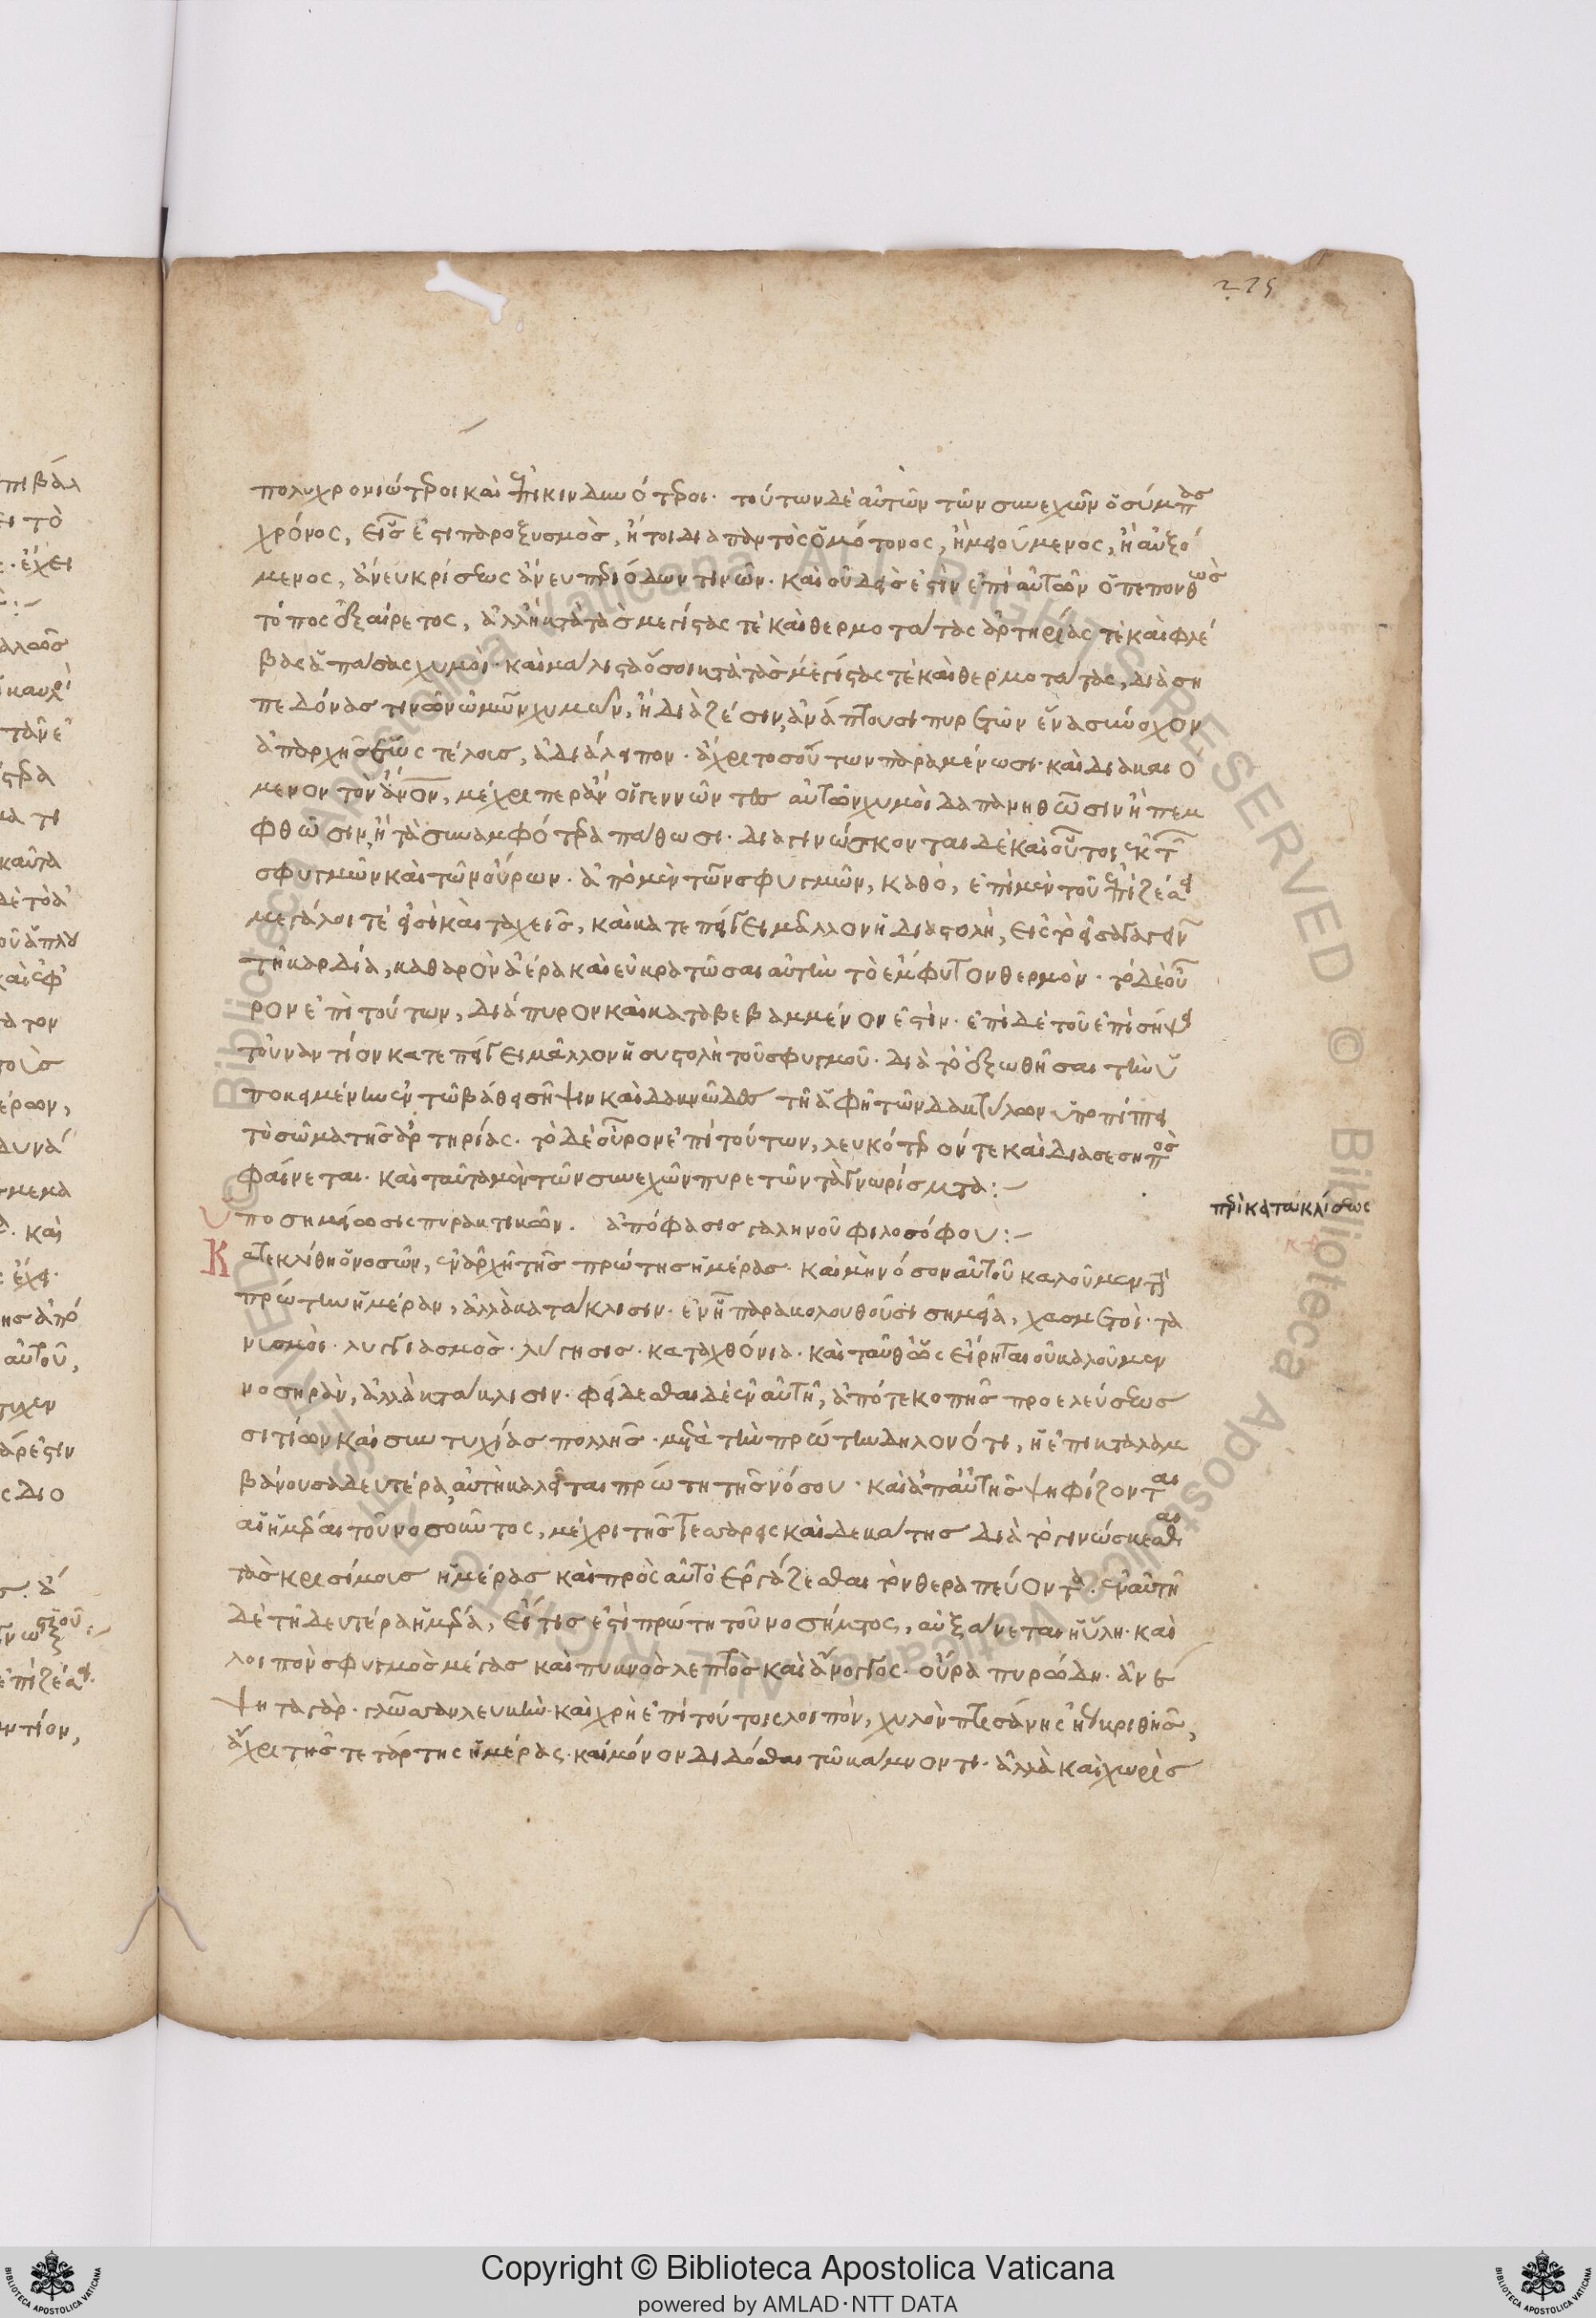 225
πολυχρονιώτεροι καὶ ἐπικινδυνότεροι· τούτων δὲ αὐτῶν τῶν συνεχῶν ὁ σύμπας
χρόνος, εἷς ἐστι παροξυσμὸς, ἤτοι διαπαντὸς ὁμότονος, ἢ μειούμενος, ἢ αὐξό
μενος, ἄνευ κρίσεως ἄνευ περιόδων τινῶν· καὶ οὐδείς ἐστιν ἐπὶ αὐτῶν ὁ πεπονθὼς
τόπος ἐξαίρετος, ἀλλ' ἢ κατὰ τὰς μεγίστας τὲ καὶ θερμοτάτας ἀρτηρίας τὲ καὶ φλέ
βας ἅπασας χυμοί· καὶ μάλιστα ὅσοι κατὰ τὰς μεγίστας τὲ καὶ θερμοτάτας, διὰ ση
πεδόνας τινῶν ὠμῶν χυμῶν, ἢ διὰ ζέσιν, ἀνάπτουσι πυρετὸν ἕνα συνόχον
ἀπαρχῆς ἕως τέλους, ἀδιάλειπον· ἄχρι τοσούτων παραμένωσι καὶ διακαιό
μενον τὸν ἄνον, μέχρι περ ἂν οἱ γεννῶντες αὐτῶν χυμοὶ δαπανηθῶσιν ἢ πεμ
φθῶσιν, ἢ τὰ συναμφότερα πάθωσι· διαγινώσκονται δὲ καὶ οὗτοι ἐκ τῶν
σφυγμῶν καὶ τῶν οὔρων· ἀπὸ μὲν τῶν σφυγμῶν, καθὸ, ἐπὶ μὲν τοῦ ἐπὶ ζέσει
μεγάλοι τέ εἰσὶ καὶ ταχεῖς, καὶ κατεπείγει μᾶλλον ἡ διαστολὴ, εἰς τὸ εἰσαγαγεῖν
τῇ καρδίᾳ, καθαρὸν ἀέρα καὶ εὐκρατῶσαι αὐτὴν τὸ ἔμφυτον θερμόν· τὸ δὲ οὖ
ρον ἐπὶ τούτων, διάπυρον καὶ καταβεβαμμένον ἐστίν· ἐπὶ δὲ τοῦ ἐπὶ σήψει
τοὐναντίον κατεπείγει μᾶλλον ἡ συστολὴ τοῦ σφυγμοῦ· διὰ τὸ ἐξωθῆσαι τὴν ὑ
ποκειμένην ἐν τῷ βάθει σῆψιν καὶ δακνῶδες τῇ ἁφῇ τῶν δακτύλων ὑποπίπτει
τὸ σῶμα τῆς ἀρτηρίας· τὸ δὲ οὖρον ἐπὶ τούτων, λευκότερόν τε καὶ διασεσηπὸς
φαίνεται· καὶ ταῦτα μὲν τῶν συνεχῶν πυρετῶν τὰ γνωρίσματα:-
Ὑποσημείωσις πυρακτικῶν. ἀπόφασις γαληνοῦ φιλοσόφου:-
περὶ κατακλίσεως
Κατεκλίθη ὁ νοσῶν, ἐν ἀρχῇ τῆς πρώτης ἡμέρας· καὶ μὴ νόσον αὐτοῦ καλοῦμεν τὴν
πρώτην ἡμέραν, ἀλλὰ κατάκλισιν· ἐν ᾗ παρακολουθοῦσι σημεῖα, χασμετοὶ· τα
νισμοὶ· λυγγιασμὸς· λύγησις· καταχθόνια· καὶ ταῦθ' ὡς εἴρηται οὐ καλοῦμεν
νοσηρὰν, ἀλλὰ κατάκλισιν· φείδεσθαι δὲ ἐν αὐτῇ, ἀπό τε κοπῆς προελεύσεως
σιτίων καὶ συντυχίας πολλῆς· μετὰ τὴν πρώτην δηλονότι, ἡ ἐπικαταλαμ
βάνουσα δευτέρα, αὐτὴ καλεῖται πρώτη τῆς νόσου· καὶ ἀπ' αὐτῆς ψηφίζονται
αἱ ἡμέραι τοῦ νοσοῦντος, μέχρι τῆς τεσσάρης καὶ δεκάτης διὰ τὸ γινώσκεσθαι
τὰς κρισίμους ἡμέρας καὶ πρὸς αὐτὸ ἐργάζεσθαι τὸν θεραπεύοντα· ἐν αὐτῇ
δὲ τῇ δευτέρα ἡμέρα, εἴ τις ἐστὶ πρώτη τοῦ νοσήματος, αὐξάνεται ἡ ὕλη· καὶ
λοιπὸν σφυγμὸς μέγας καὶ πυκνὸς λεπτὸς καὶ ἄνοστος· οὖρα πυρώδη· ἀνέ
ψητα γάρ· γλῶσσαν λευκὴν· καὶ χρὴ ἐπὶ τούτοις λοιπὸν, χυλὸν πτισάνης ἤγουν κριθῆς,
ἄχρι τῆς τετάρτης ἡμέρας· καὶ μόνον διδόσθαι τῷ κάμνοντι· ἀλλὰ καὶ χωρὶς
Copyright © Biblioteca Apostolica Vaticana
powered by AMLAD·NTT DATA